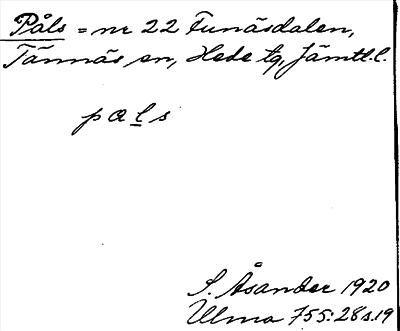 Påls = nr 22 Funäsdalen,
Tännäs sn, Hede tg, Jämtl. l.
pals
S. Åsander 1920
Ulma 755:28 s.19